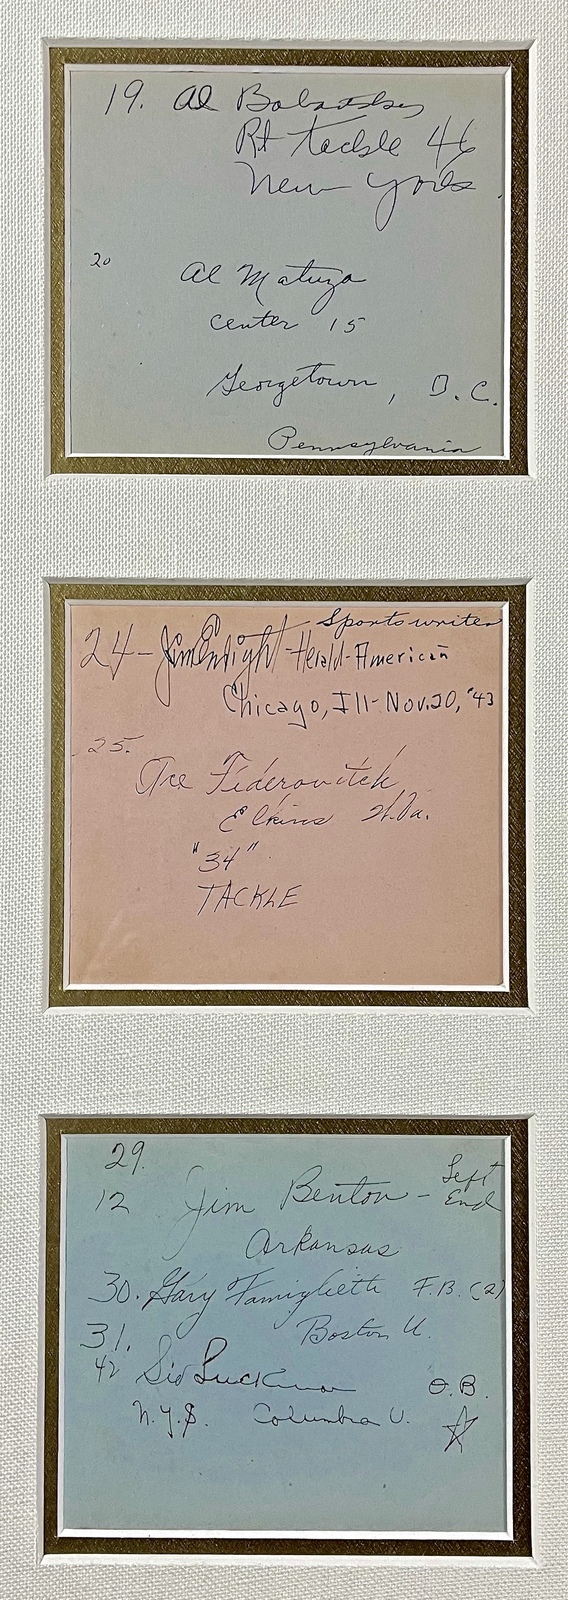 19. Al Babartsky
Rt tackle 46
New York
20
Al Matuza
Center 15
Georgetown, D.C.
Pennsylvania
Sportswriter
24-Jim Enright-Herald-American
Chicago, Ill-Nov.20, '43
25.
Fiderovitch
Elkins W.Va.
"34"
TACKLE
29.
12 Jim Benton - Left
End
Arkansas
30. Gary Famiglietti F.B. (2)
31. Boston U.
42 Sid Luckman Q.B.
N.Y. Columbia U.